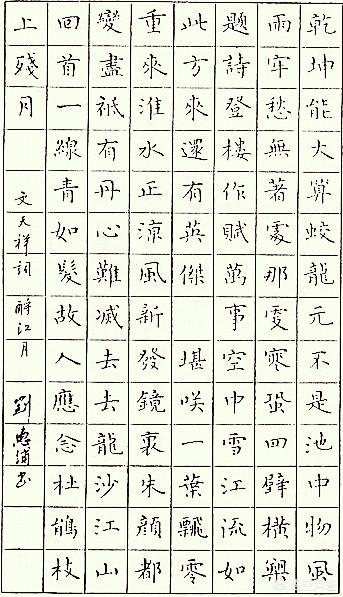 乾坤能大算蛟龍元不是池中物風
雨牢愁無著處那更寒蛩四壁橫槊
題詩登樓作賦萬事空中雪江流如
此方來還有英傑 堪咲一葉飄零
重來淮水正涼風新發鏡裏朱顏都
變盡祇有丹心難滅去去龍沙江山
回首一線青如髮故人應念杜鵑枝
上殘月 文天祥詞 酹江月 劉惠浦书